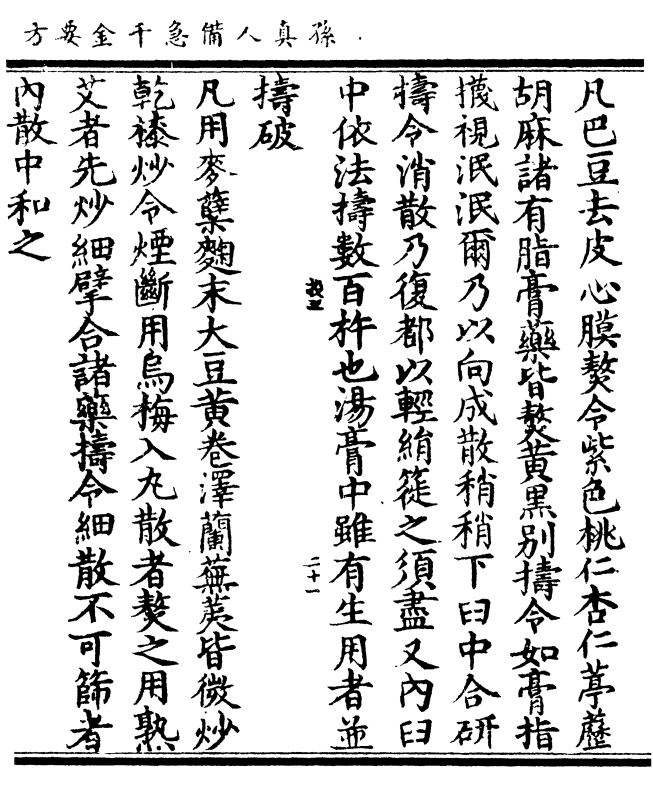 孫真人備急千金要方
凡巴豆去皮心膜熬令紫色桃仁杏仁葶藶
胡麻諸有脂膏藥皆熬黃黑別擣令如膏指
㩢視泯泯爾乃以向成散稍稍下臼中合研
擣令消散乃復都以輕絹簁之須盡又內臼
中依法擣數百杵也湯膏中雖有生用者並
擣破
凡用麥糵麴末大豆黃卷澤蘭蕪荑皆微炒
乾漆炒令煙斷用烏梅入丸散者熬之用熟
艾者先炒細擘合諸藥擣令細散不可篩者
內散中和之
二十一